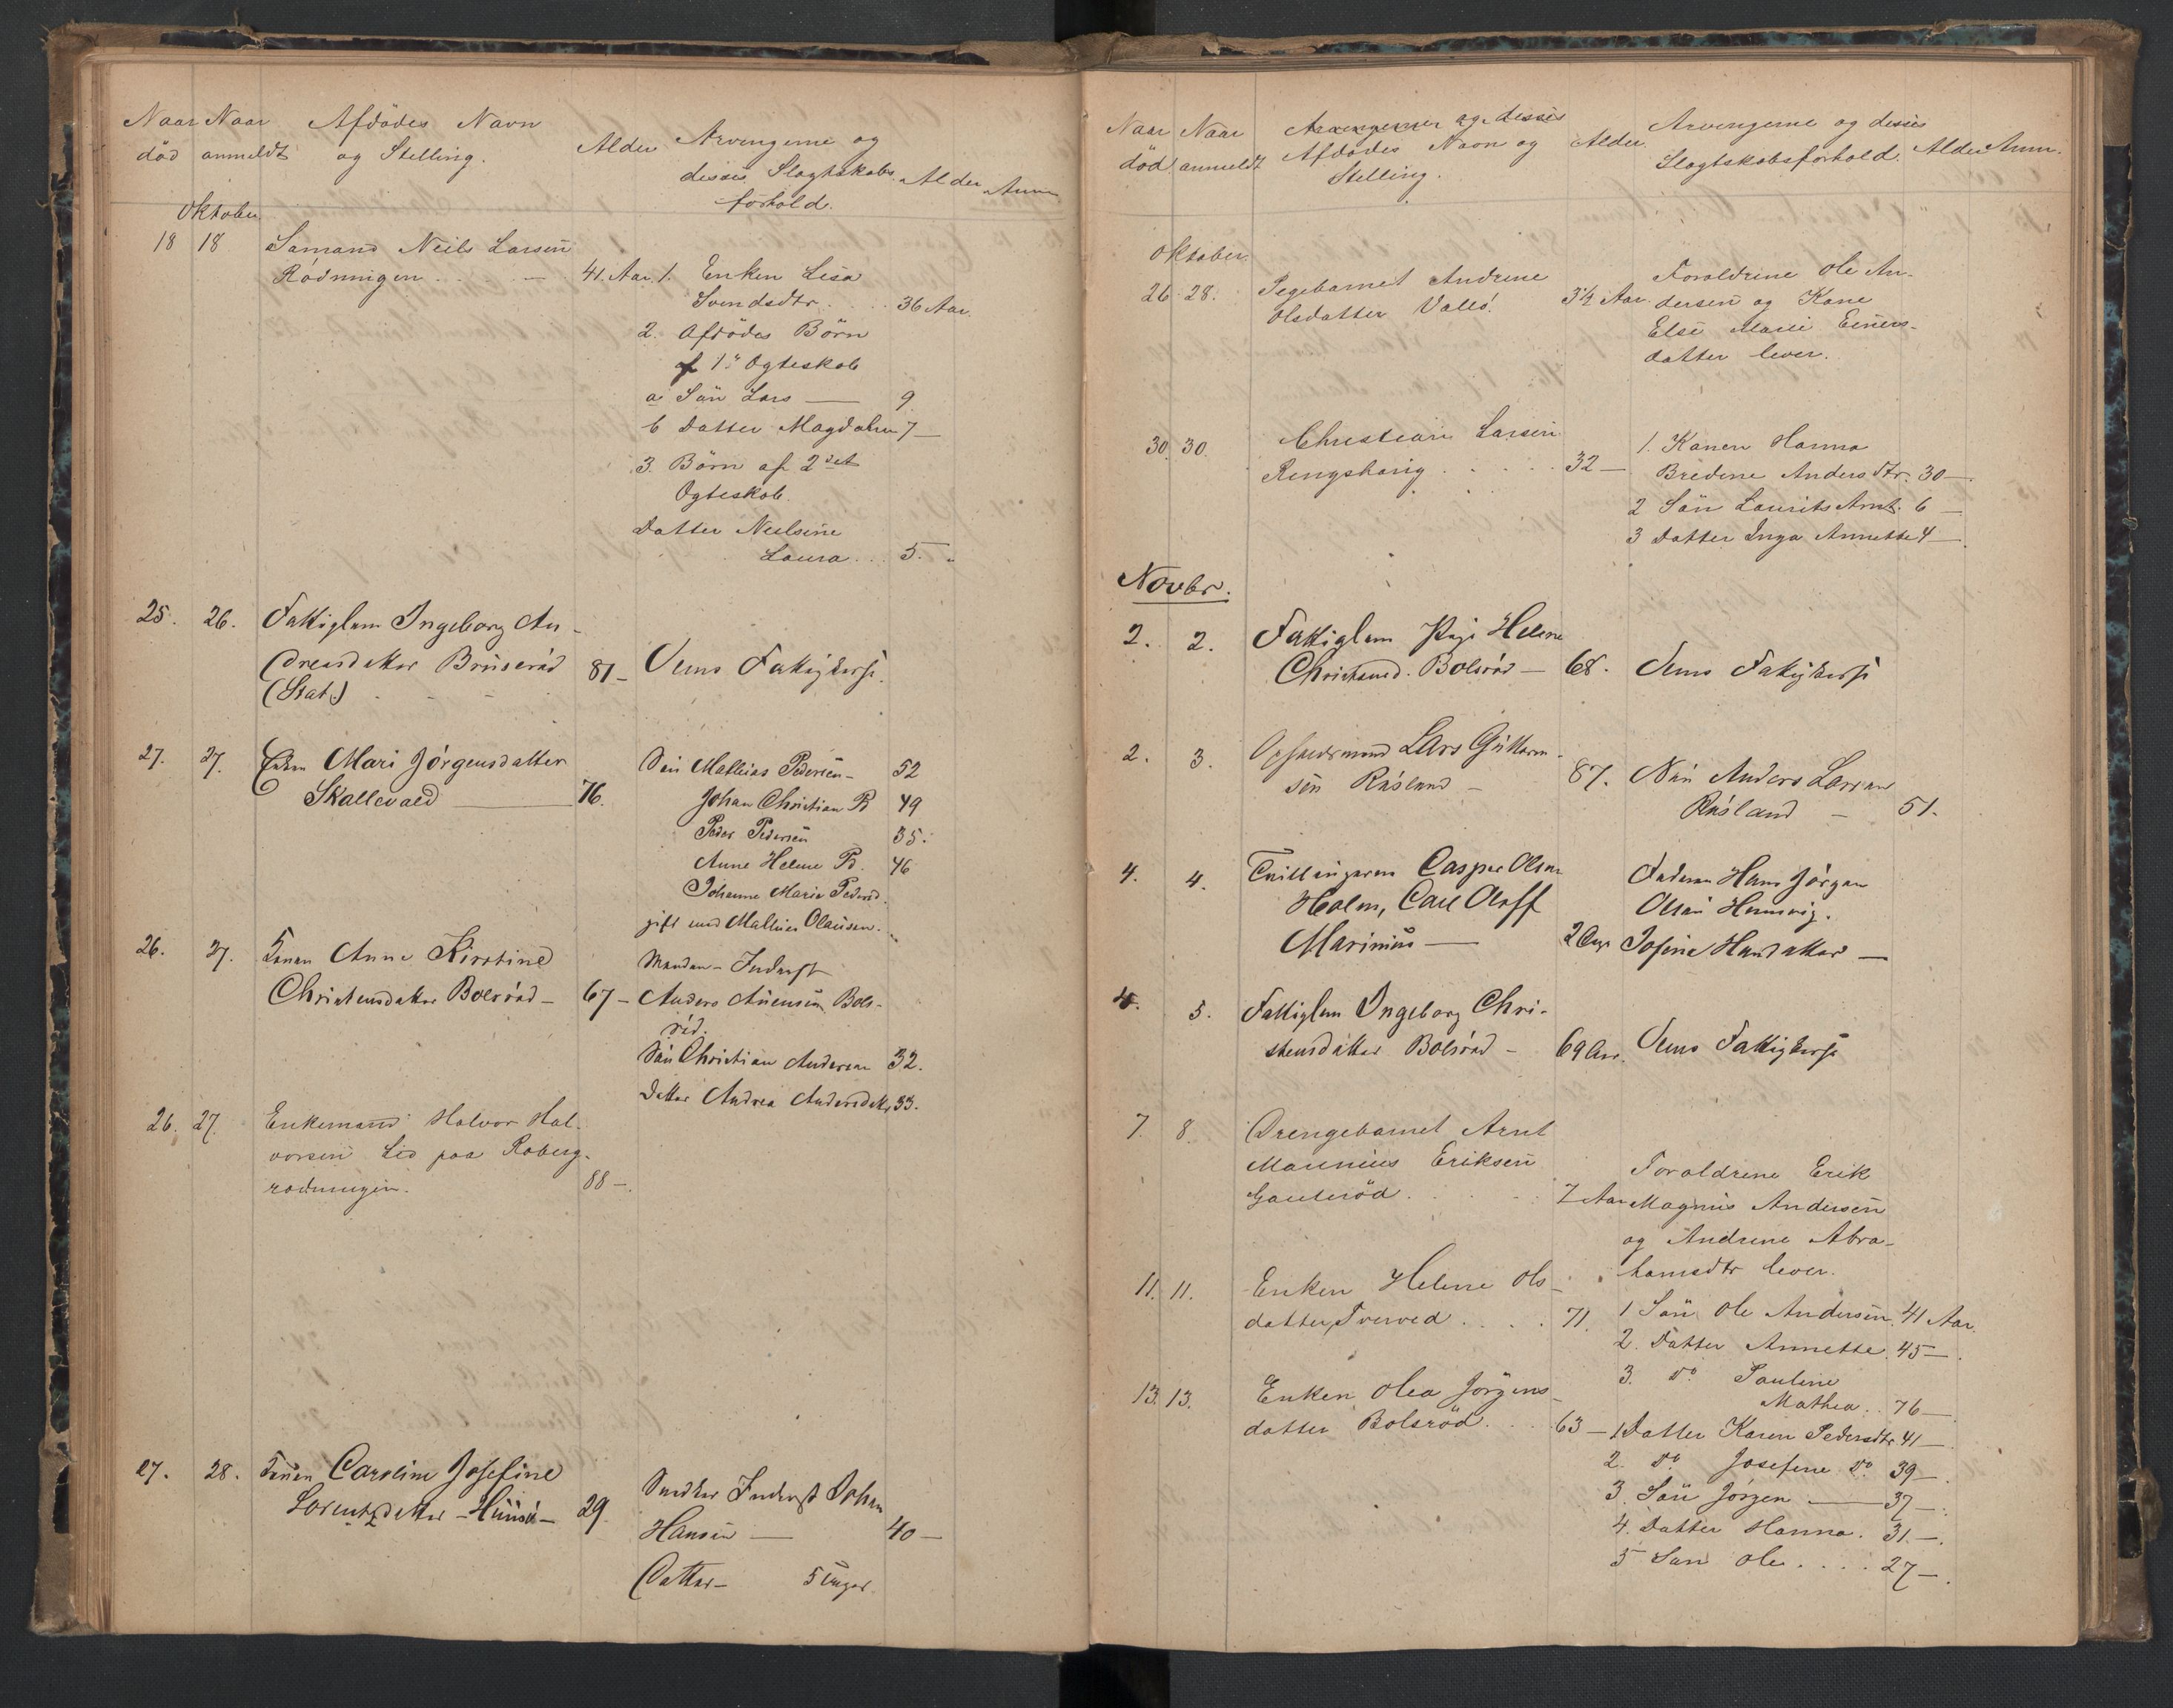 Naar Naar Afdödes Navn
död anmeldt og Stelling.
Alder Arvingerne og
disses Slagtskabs Alder Anm
forhold.
Oktober
18 18 Sømand Neils Larsen
Rödningen 41 Aar. 1. Enken Lisa
Svendsdtr. 36 Aar.
2. Afdödes Börn
af 1ste Ogteskab
a Sön Lars — 9
b Datter Magdalene 7 —
3. Börn af 2det
Ogteskab.
Datter Neilsine
Laura 5. "
25. 26. Fattiglem Ingeborg An-
dreasdatter Bruseröd 81 —
(Stat.)
27. 27. Enken Mari Jörgensdatter
Skallevald — 76.
Sön Mathias Pedersen — 52
Johan Christian P 49
Peder Pedersen 35.
Anne Helene Pd. 46
Johanne Marie Pedersd.
gift med Mathias Olausen.
26. 27. Konen Anne Kirstine
Christensdatter Bolsröd — 67 —
Manden — Inderst
Anders Bols-
röd.
Sön Christian Andersen 32.
Datter Andrea Andersdatter 33.
26. 27. Enkemand Halvor Hal-
vorsen Lid paa Roberg-
rödningen. 88 —.
27. 28. Konen Caroline Josefine
Lorentzdatter — 29.
Inderst Johan
Hansen — 40 —
Datter — 5 Uger.
Naar Naar Arvingerne og disses
död anmeldt Afdödes Navn og Alder.
Stelling.
Arvingerne og disses
Slagtskabsforhold. Alder Anm.
Oktober.
26. 28. Pegebarnet Andrine
Olsdatter Vallö. 3½ Aar.
Foraldrene Ole An-
dersen og Kone
Else Marie Einers-
datter lever.
30. 30. Christian Larsen
Ringshaug 32 —
1. Konen Hanna
Bredine Andersdtr. 30 —.
2 Sön Laurits Arnt. 6 —
3 Datter Inga Annette 4 —.
Novbr.
2. 2. Fattiglem Helene
Christensd. Bolsröd — 68.
2. 3. Lars Guttorm-
sen Råsland — 87.
Sön Anders Larsen
Råsland — 51.
4. 4. Tvillingerne Casper Olsen
Holm, Carl Oluff
Marinius — 2 Dage
Faderen Hans Jörgen
Olsen
Josine Hansdatter —
4. 5. Fattiglem Ingeborg Chri-
stensdatter Bolsröd — 69 Aar.
7. 8. Drengebarnet Arnt
Marinius Eriksen
Gauteröd. 7 Aar
Foraldrene Erik
Magnus Andersen
og Andrine Abra-
hamsdtr lever.
11. 11. Enken Helene Ols-
datter, Tverved 71.
1 Sön Ole Andersen. 41 Aar.
2. Datter Annette. 45 —.
3. Do Pauline
Mathea. 76 —.
13. 13. Enken Olea Jörgens-
datter Bolsröd. 63 —
1 Datter Karen Pedersdtr 41 —
2. Do Josefine Do 39 —.
3. Sön Jörgen — 37 —.
4. Datter Hanna. 31 —.
5 Sön Ole. 27 —.